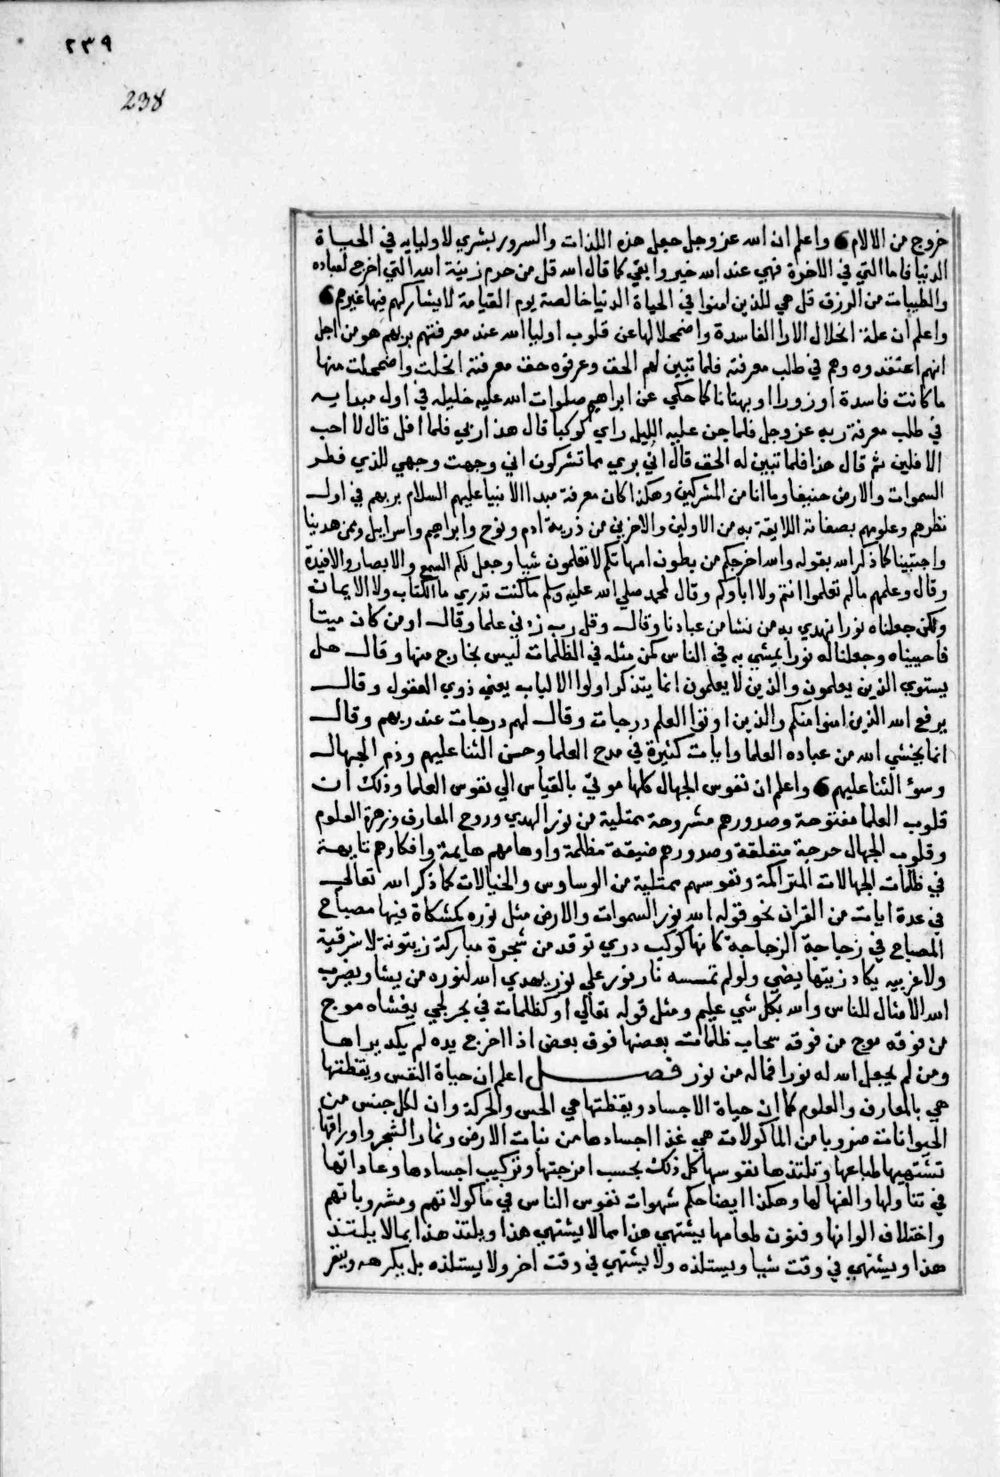 ٢٣٩
238
خروج من الالام ۞ واعلم ان الله عز وجل جعل هذه اللذات والسرور بشري لاوليايه في الحياة
الدنيا فاما التي في الاخرة فهي عند الله خير وابقي كما قال الله قل من حرم زينة الله التي اخرج لعباده
والطيبات من الرزق قل هي للذين امنوا في الحياة الدنيا خالصة يوم القيامة لا يشاركهم فيها غيرهم ۞
واعلم ان علة انحلال الارا الفاسدة واضمحلالها عن قلوب اوليا الله عند معرفتهم بربهم هو من اجل
انهم اعتقدوه وهم في طلب معرفته فلما تبين لهم الحق وعرفوه حق معرفته انحلت واضمحلت منها
ما كانت فاسدة او زورا او بهتانا كما حكي عن ابراهيم صلوات الله عليه خليله في اول مبدايه
في طلب معرفة ربه عز وجل فلما جن عليه الليل راي كوكبا قال هذا ربي فلما افل قال لا احب
الافلين ثم قال هذا فلما تبين له الحق قال اني بري مما تشركون اني وجهت وجهي للذي فطر
السموات والارض حنيفا وما انا من المشركين وهكذا كان معرفة مبدا الانبيا عليهم السلام بربهم في اول
نظرهم وعلومهم بصفاته اللايقة به من الاولين والاخرين من ذرية ادم ونوح وابراهيم واسراييل وممن هدينا
واجتبينا كما ذكر الله بقوله والله اخرجكم من بطون امهاتكم لا تعلمون شيا وجعل لكم السمع والابصار والافيدة
وقال وعلمهم مالم تعلموا انتم ولا اباوكم وقال لمحمد صلي الله عليه وسلم ما كنت تدري ما الكتاب ولا الايمان
ولكن جعلناه نورا نهدي به من نشا من عبادنا وقال وقل رب زدني علما وقال اومن كان ميتا
فاحييناه وجعلنا له نورا يمشي به في الناس كمن مثله في الظلمات ليس بخارج منها وقال هل
يستوي الذين يعلمون والذين لا يعلمون انما يتذكر اولوا الالباب يعني ذوي العقول وقال
يرفع الله الذين امنوا منكم والذين اوتوا العلم درجات وقال لهم درجات عند ربهم وقال
انما يخشي الله من عباده العلما وايات كثيرة في مدح العلما وحسن الثنا عليهم وذم الجهال
وسؤ الثنا عليهم ۞ واعلم ان نفوس الجهال كلها موتي بالقياس الي نفوس العلما وذلك ان
قلوب العلما مفتوحة وصدورهم مشروحة ممتلية من نور الهدي وروح المعارف وزهرة العلوم
وقلوب الجهال حرجة منغلقة وصدورهم ضيقة مظلمة واوهامهم هايمة وافكارهم تايهة
في ظلمات الجهالات المتراكمة ونفوسهم ممتلية من الوساوس والخيالات كما ذكر الله تعالي
في عدة ايات من القران نحو قوله الله نور السموات والارض مثل نوره كمشكاة فيها مصباح
المصباح في زجاجة الزجاجة كانها كوكب دري توقد من شجرة مباركة زيتونة لا شرقية
ولا غربيه يكاد زيتها يضي ولو لم تمسسه نار نور علي نور يهدي الله لنوره من يشا ويضرب
الله الامثال للناس والله بكل شي عليم ومثل قوله تعالي او كظلمات في بحر لجي يغشاه موج
من فوقه موج من فوقه سحاب ظلمات بعضها فوق بعض اذا اخرج يده لم يكد يراها
ومن لم يجعل الله له نورا فماله من نور فصل اعلم ان حياة النفس ويقظتها
هي بالمعارف والعلوم كما ان حياة الاجساد ويقظتها هي الحس والحركة وان لكل جنس من
الحيوانات ضروبا من الماكولات هي غذا اجسادها من نبات الارض وثمار الشجر واوراقها
تشتهيها طباعها وتلتذها نفوسها كل ذلك بحسب امزجتها وتركيب اجسادها وعاداتها
في تناولها والفها لها وهكذا ايضا حكم شهوات نفوس الناس في ماكولاتهم ومشروباتهم
واختلاف الوانها وفنون طعامها يشتهي هذا مما لا يشتهي هذا ويلتذ هذا بما لا يلتذ
هذا ويشتهي في وقت شيا ويستلذه ولا يشتهي في وقت اخر ولا يستلذه بل يكرهه وينفر